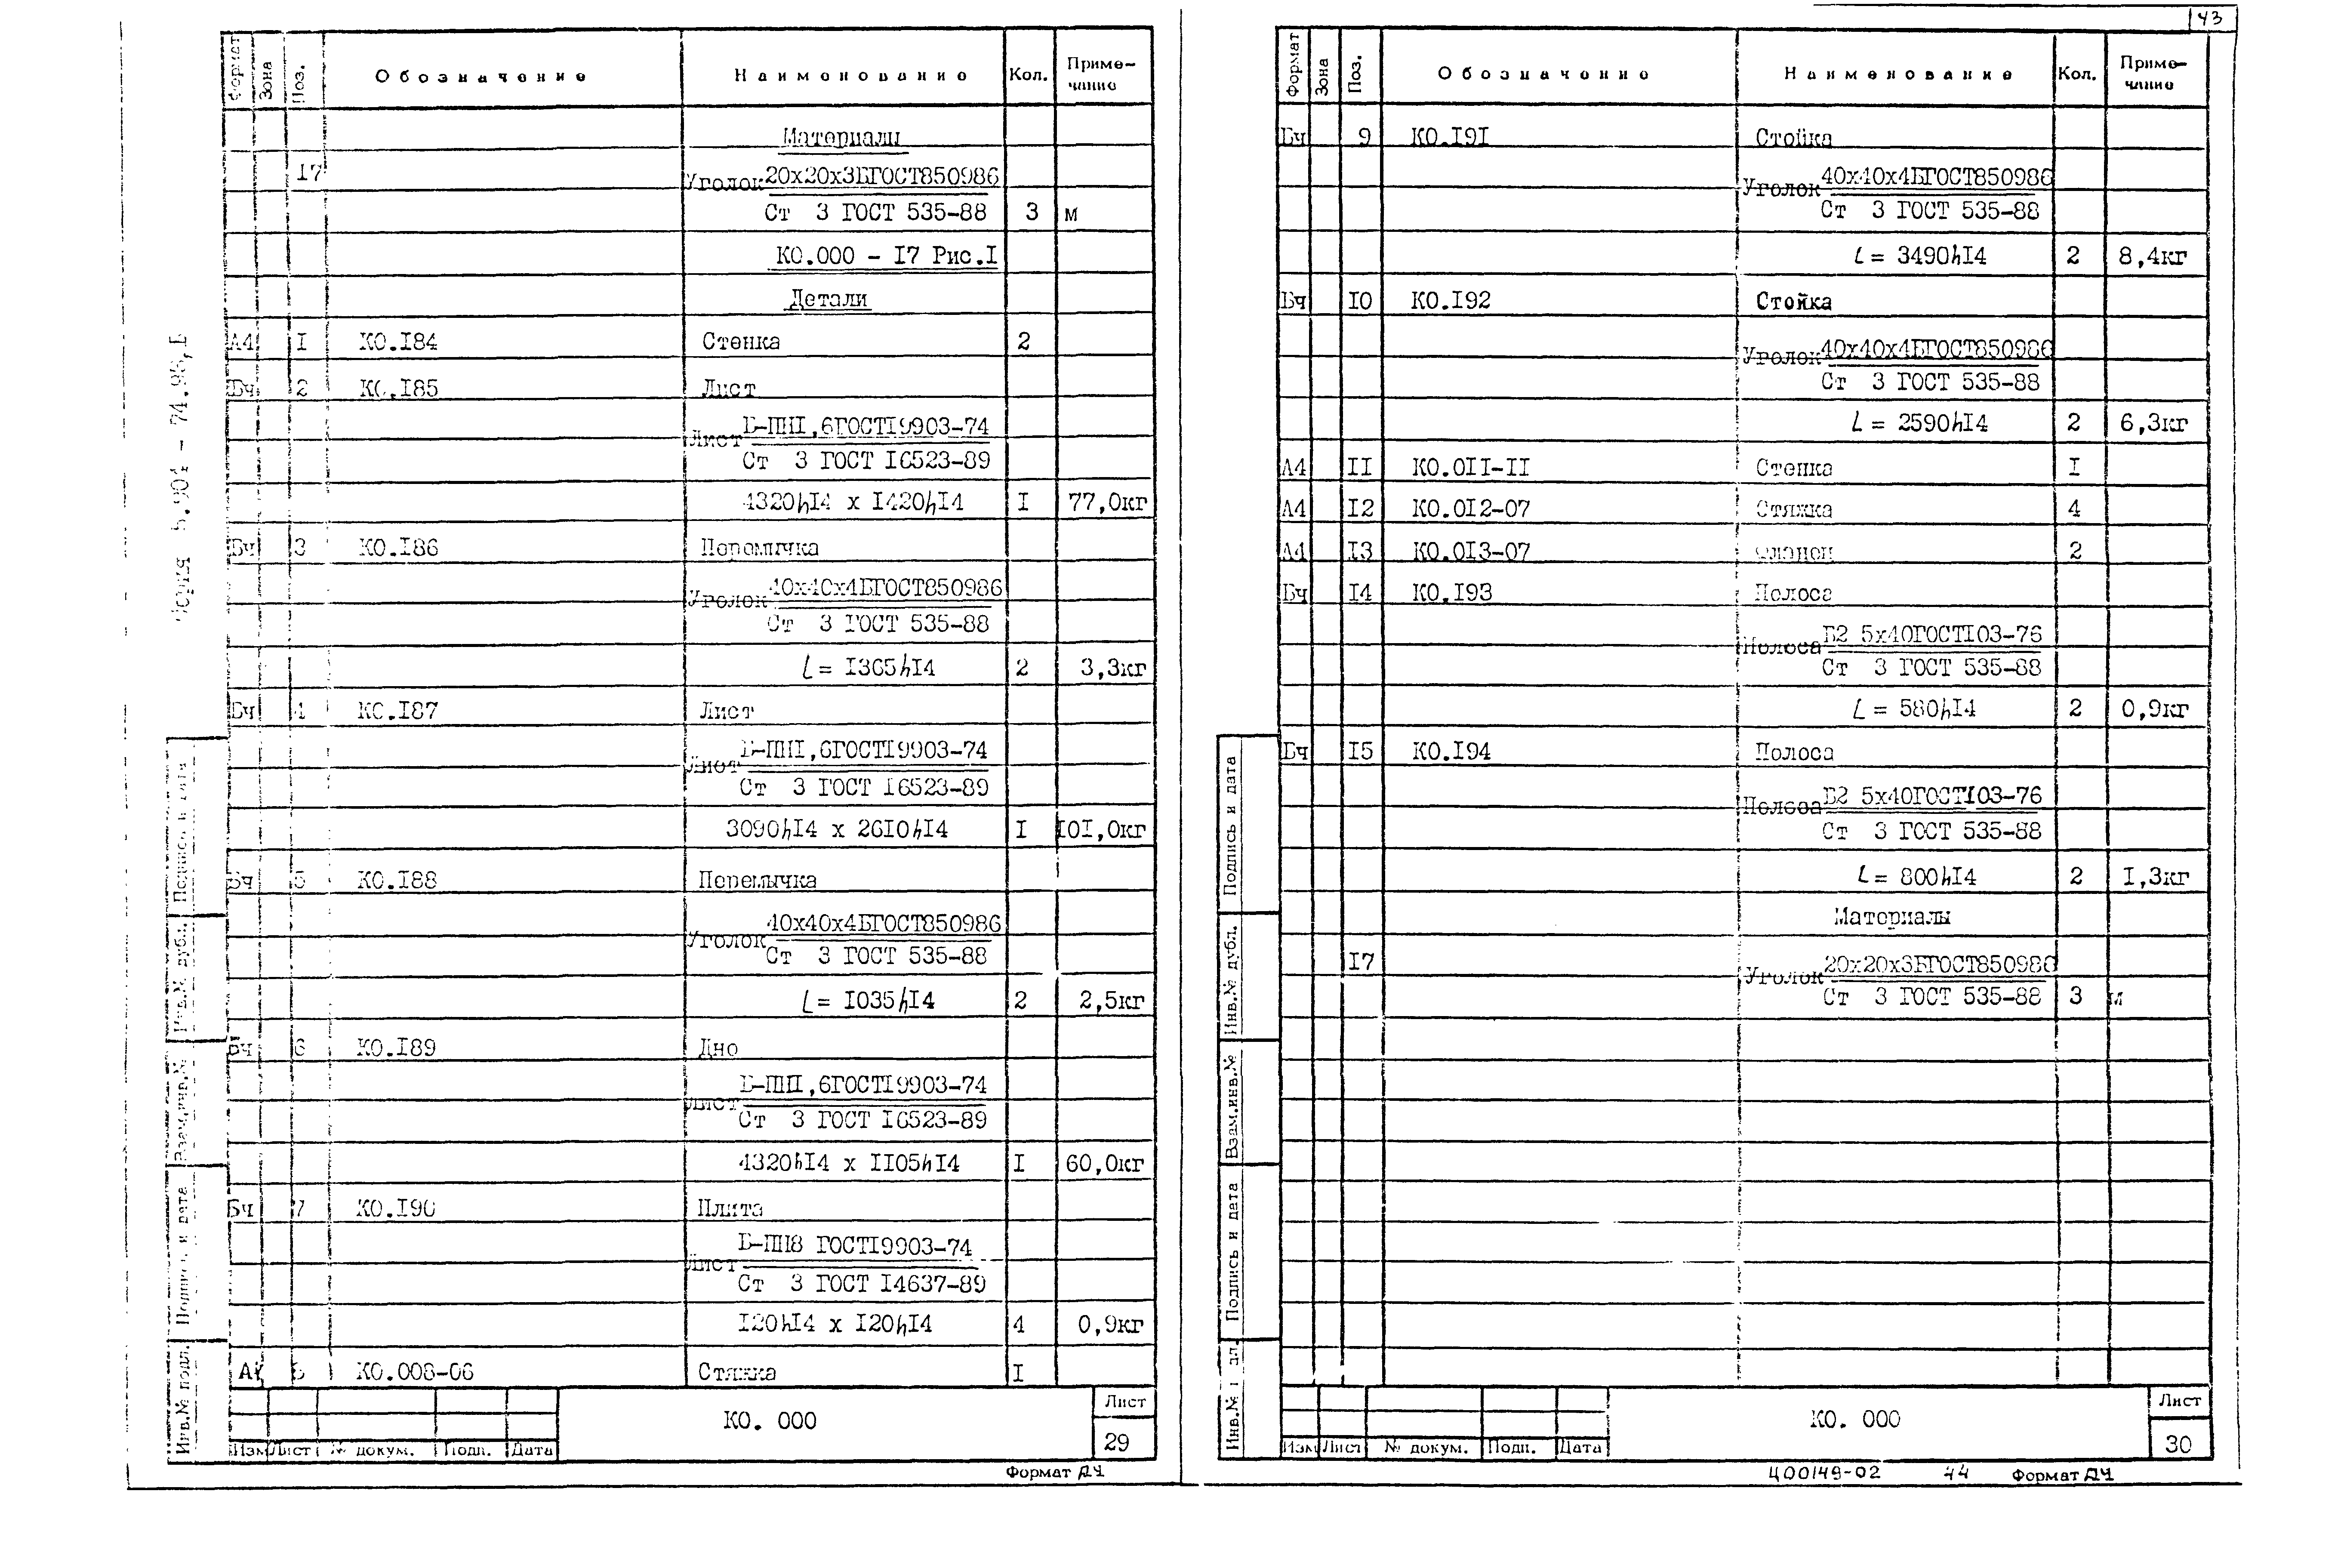 43
Формат Зона Поз. Обозначение Наименование Кол. Приме-
чание
Материалы
17 Уголок 20х20х3БГОСТ850986
Ст 3 ГОСТ 535-88 3 м
КО.000 - 17 Рис.1
Детали
А4 1 КО.184 Стенка 2
Бч 2 КО.185 Лист
Лист Б-ПН1,6ГОСТ19903-74
Ст 3 ГОСТ 16523-89
4320h14 х 1420h14 1 77,0кг
Бч 3 КО.186 Перемычка
Уголок 40х40х4БГОСТ850986
Ст 3 ГОСТ 535-88
L= 1365h14 2 3,3кг
Бч 4 КО.187 Лист
Лист Б-ПН1,6ГОСТ19903-74
Ст 3 ГОСТ 16523-89
3090h14 х 2610h14 1 101,0кг
Бч 5 КО.188 Перемычка
Уголок 40х40х4БГОСТ850986
Ст 3 ГОСТ 535-88
L= 1035h14 2 2,5кг
Бч 6 КО.189 Дно
Лист Б-ПН1,6ГОСТ19903-74
Ст 3 ГОСТ 16523-89
4320h14 х 1105h14 1 60,0кг
Бч 7 КО.190 Плита
Лист Б-ПН8 ГОСТ19903-74
Ст 3 ГОСТ 14637-89
120h14 х 120h14 4 0,9кг
А4 8 КО.008-06 Стяжка 1
Изм Лист № докум. Подп. Дата
КО. 000
Лист
29
Формат А4
5.904 - 74.95,
Подпись и дата
Инв.№ дубл.
Взам.инв.№
Подпись и дата
Инв.№ подл.
Формат Зона Поз. Обозначение Наименование Кол. Приме-
чание
Бч 9 КО.191 Стойка
Уголок 40х40х4БГОСТ850986
Ст 3 ГОСТ 535-88
L= 3490h14 2 8,4кг
Бч 10 КО.192 Стойка
Уголок 40х40х4БГОСТ850986
Ст 3 ГОСТ 535-88
L= 2590h14 2 6,3кг
А4 11 КО.011-11 Стенка 1
А4 12 КО.012-07 Стяжка 4
А4 13 КО.013-07 Фланец 2
Бч 14 КО.193 Полоса
Полоса Б2 5х40ГОСТ103-76
Ст 3 ГОСТ 535-88
L= 580h14 2 0,9кг
Бч 15 КО.194 Полоса
Полоса Б2 5х40ГОСТ103-76
Ст 3 ГОСТ 535-88
L= 800h14 2 1,3кг
Материалы
17 Уголок 20х20х3БГОСТ850986
Ст 3 ГОСТ 535-88 3 м
Подпись и дата
Инв.№ дубл.
Взам.инв.№
Подпись и дата
Инв.№
Изм Лист № докум. Подп. Дата
КО. 000
Лист
30
Ц00149-02 44 Формат А4